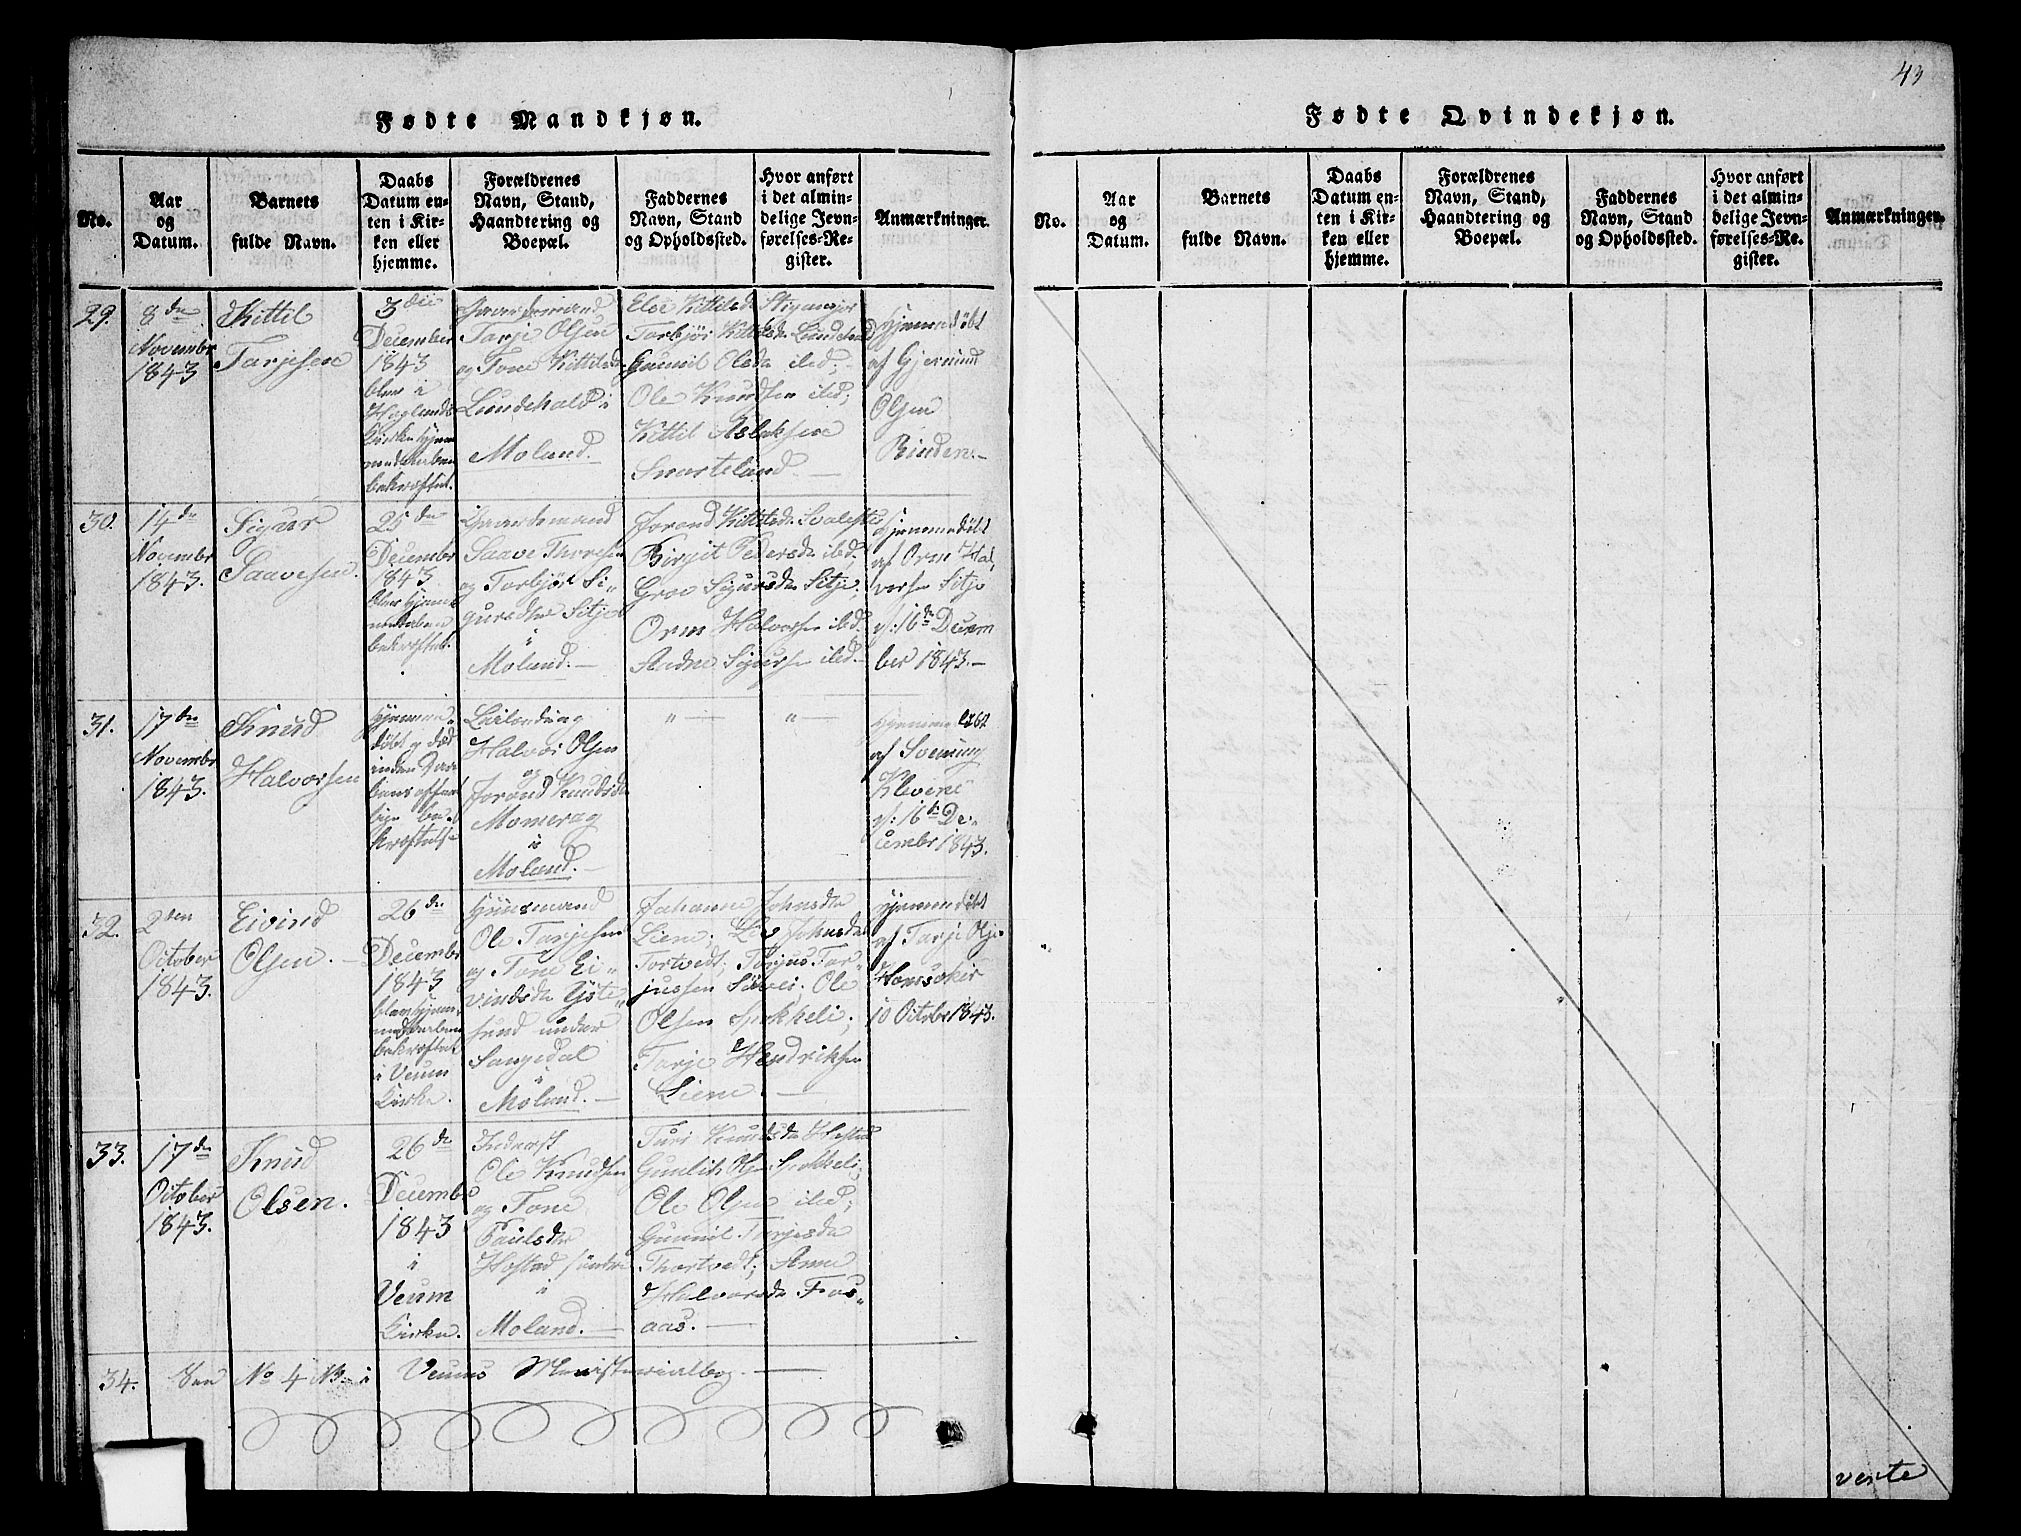 43
Fødte Mandkjøn.
No.
Aar
og
Datum.
Barnets
fulde Navn.
Daabs
Datum en-
ten i Kir-
ken eller
hjemme.
Forældrenes
Navn, Stand,
Haandtering og
Boepæl.
Faddernes
Navn, Stand
og Opholdssted.
Hvor anført
i det almin-
delige Jevn-
førelses-Re-
gister.
Anmærkninger.
29.
8de
November
1843
Kittil
Tarjesen
3die
December
1843
blev i
Kirke hjem
medaaben
bekræftet.
Gaardemand
Tarje Olsen
og Tone Kittilsd
Lundehald i
Moland.
Else Kittilsd
Torbjør Kittilsd Lundehald
Gunnil Olsd ibd;
Ole Knudsen ibd;
Kittil Aslaksen
Smarteland
Hjemmedøbt
af Gjermund
Olsen
Rinden.
30.
14de
November
1843.
Sigur
Saavesen.
25de
December
1843
blev hjem
medaaben
bekræftet.
Gaardemand
Saave Thoresen
og Torbjør Si-
gursdtr Sitje
i
Moland.
Jorand Kittilsd
Birgit Pedersd ibd
Groe Sigursd Sitje;
Orm Halvorsen ibd
Aadne Sigursen ibd
Hjemmedøbt
af Orm Hal
vorsen Sitje
d: 16de Decem
ber 1843.
31.
17de
November
1843.
Knud
Halvorsen
Hjemme-
døbt og død
inden Daa
bens offent
lige be-
kræftelse
Halvor Olsen
og
Jorand Knudsd
Momerag
i
Moland.
" "
Hjemmedøbt
af Svenung
Klevene
d: 16de De-
cember 1843.
32.
2den
October
1843.
Eivind
Olsen.
26de
December
1843
blev hjem
medaaben
bekræftet
i Veum
Kirke.
Huusmand
Ole Tarjesen
og Tone Ei-
vindsd Øste-
sund under
Sangedal
i
Moland.
Johanne Johnsd
Liene; Liv Johnsd
Tortvedt; Torjus Tor-
jussen Ole
Olsen Spokkeli;
Tarje Hendriksen
Liene.
Hjemmedøbt
af Tarje Olsen
10 October 1843.
33.
17de
October
1843.
Knud
Olsen.
26de
December
1843
i
Veum
Kirke.
Inderst
Ole Knudsen
og Tone
Paulsd
Hostad søndre
i
Moland.
Turi Knudsd Hostad
Gunlik Olsen Spokkeli;
Ole Olsen ibd;
Gunnil Torjesd
Thortvedt; Anne
Halvorsd Fos-
aas.
34. See No 4 i Veums Ministerialbog.
Fødte Qvindekjøn.
No.
Aar
og
Datum.
Barnets
fulde Navn.
Daabs
Datum en-
ten i Kir-
ken eller
hjemme.
Forældrenes
Navn, Stand,
Haandtering og
Boepæl.
Faddernes
Navn, Stand
og Opholdssted.
Hvor anført
i det almin-
delige Jevn-
førelses-Re-
gister.
Anmærkninger.
verte